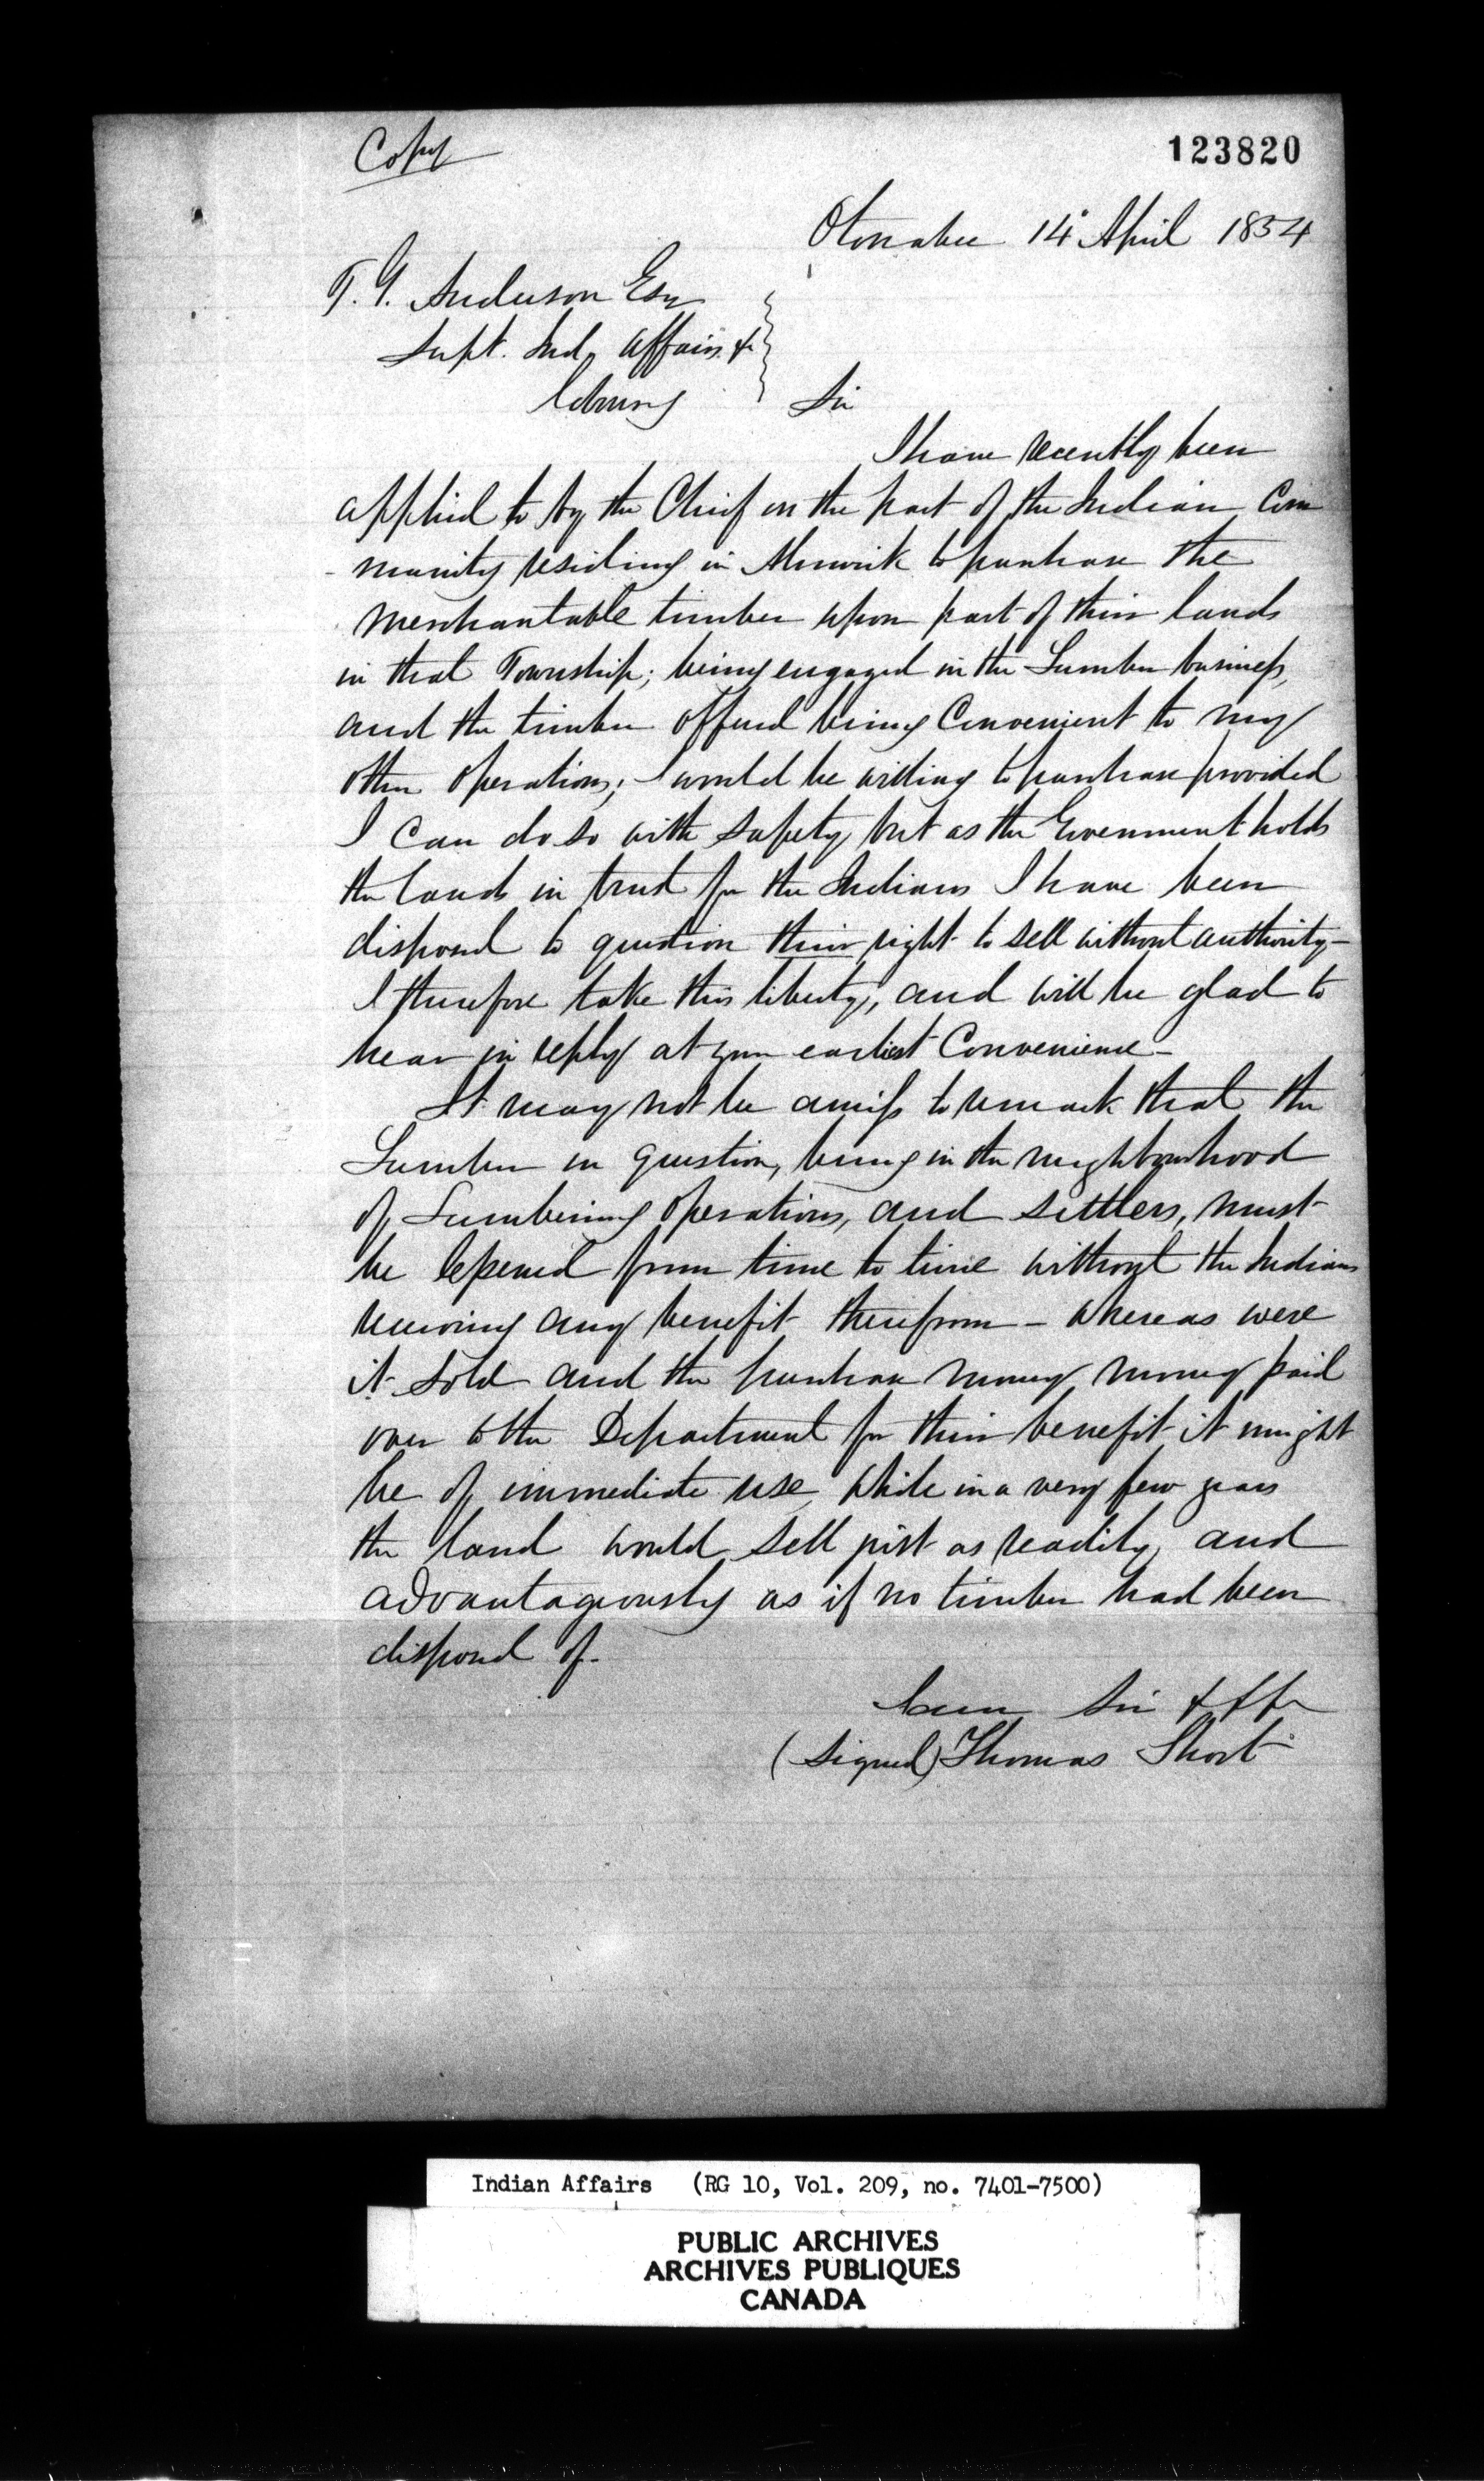 Copy
123820
Otonabee 14 April 1854
T. G. Anderson Esq
Supt. Ind. Affairs &c
Cobourg
Sir
I have recently been
applied to by the Chief on the part of the Indian Com
-munity residing in Alnwick to purchase the
merchantable timber upon part of their lands
in that Township; being engaged in the Lumber business,
and the timber offered being Convenient to my
other operations; I would be willing to purchase provided
I can do so with safety, but as the Government holds
the lands in trust for the Indians I have been
disposed to question their right to sell without authority-
I therefore take this liberty, and will be glad to
hear in reply at your earliest Convenience-
It may not be amiss to remark that the
Lumber in question, being in the neighbourhood
of Lumbering operations, and settlers, must
be lessened from time to time without the Indians
receiving any benefit therefrom - whereas were
it sold and the purchase money money paid
over to the Department for their benefit it might
be of immediate use while in a very few years
the land would sell just as readily, and
advantageously as if no timber had been
disposed of-
I am Sir &c &c
(Signed) Thomas Short
Indian Affairs (RG 10, Vol. 209, no. 7401-7500)
PUBLIC ARCHIVES
ARCHIVES PUBLIQUES
CANADA